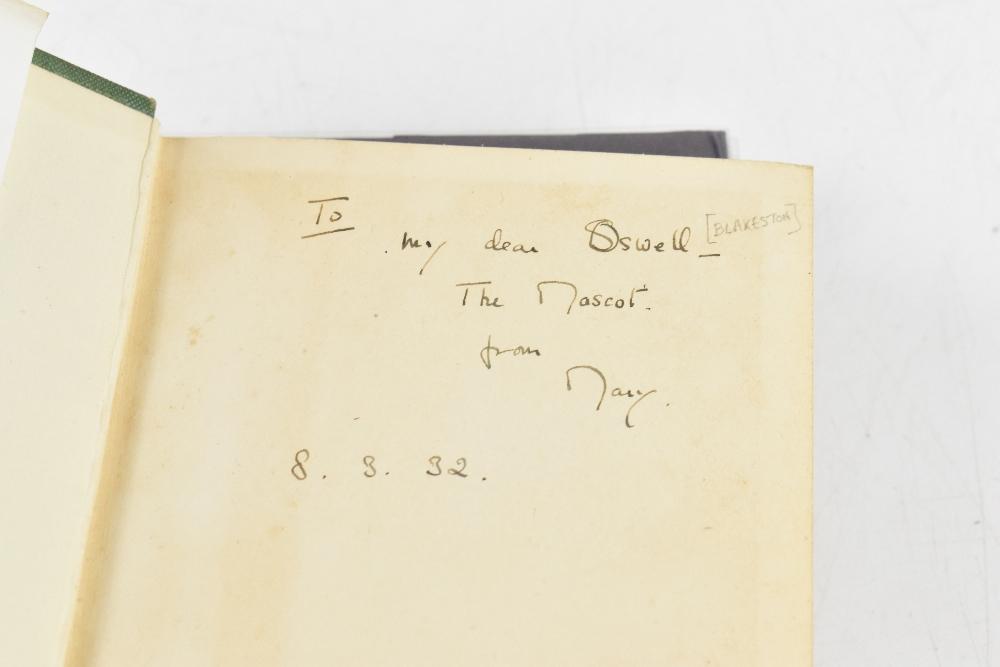 To
my dear Oswell [BLAKESTON]
The Mascot.
from
Mary.
8. 3. 32.